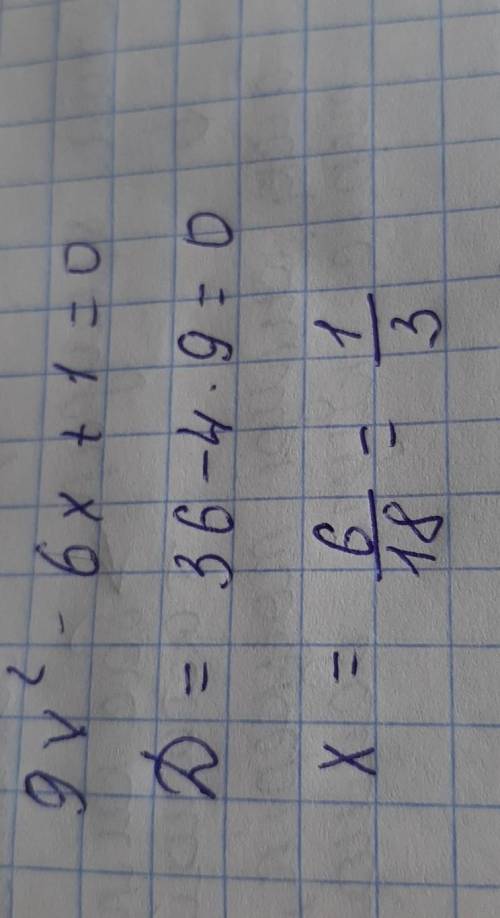 9x² - 6x + 1 = 0
D = 36 - 4 · 9 = 0
x = 6/18 = 1/3